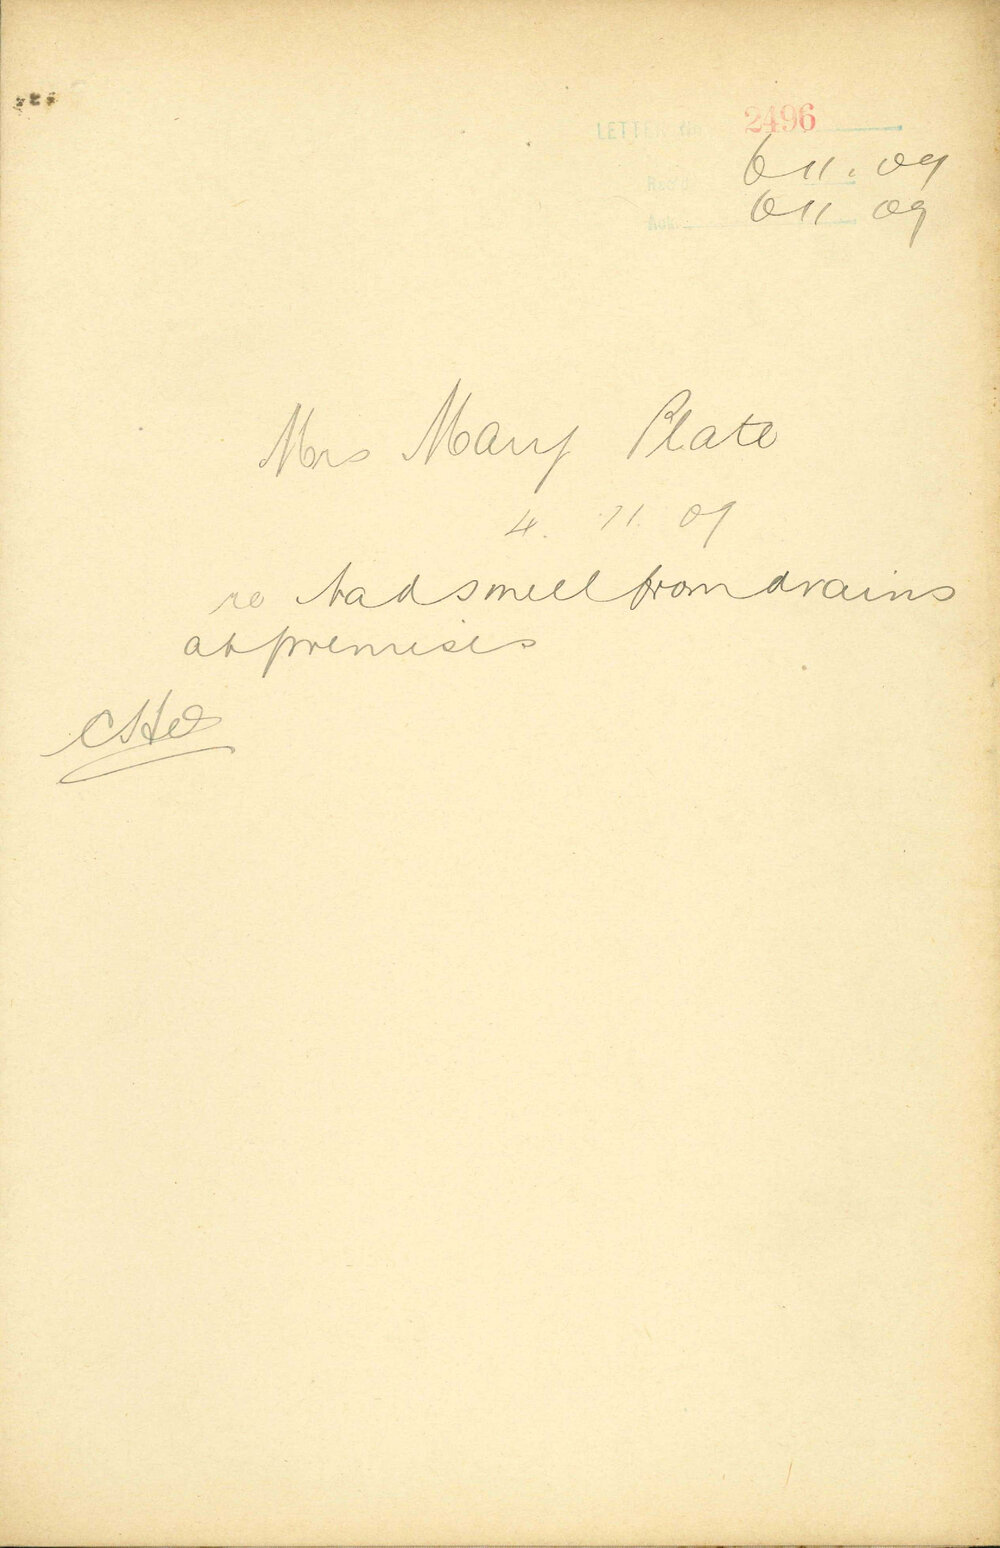 LETTER No. 2496
Rec'd 6 11. 09
Ack. 6 11 09
Mrs Mary Plate
4. 11. 09
re bad smell from drains
at premises